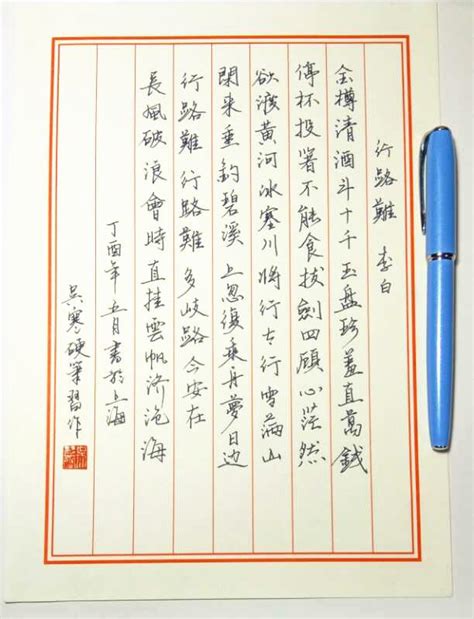 行路難 李白
金樽清酒斗十千玉盤珍羞直萬錢
停杯投箸不能食拔劍四顧心茫然
欲渡黃河冰塞川將行太行雪滿山
閑来垂釣碧溪上忽復乘舟夢日边
行路難行路難多歧路今安在
長風破浪會時直挂雲帆济沧海
丁酉年五月書於上海
吳寒硬筆習作